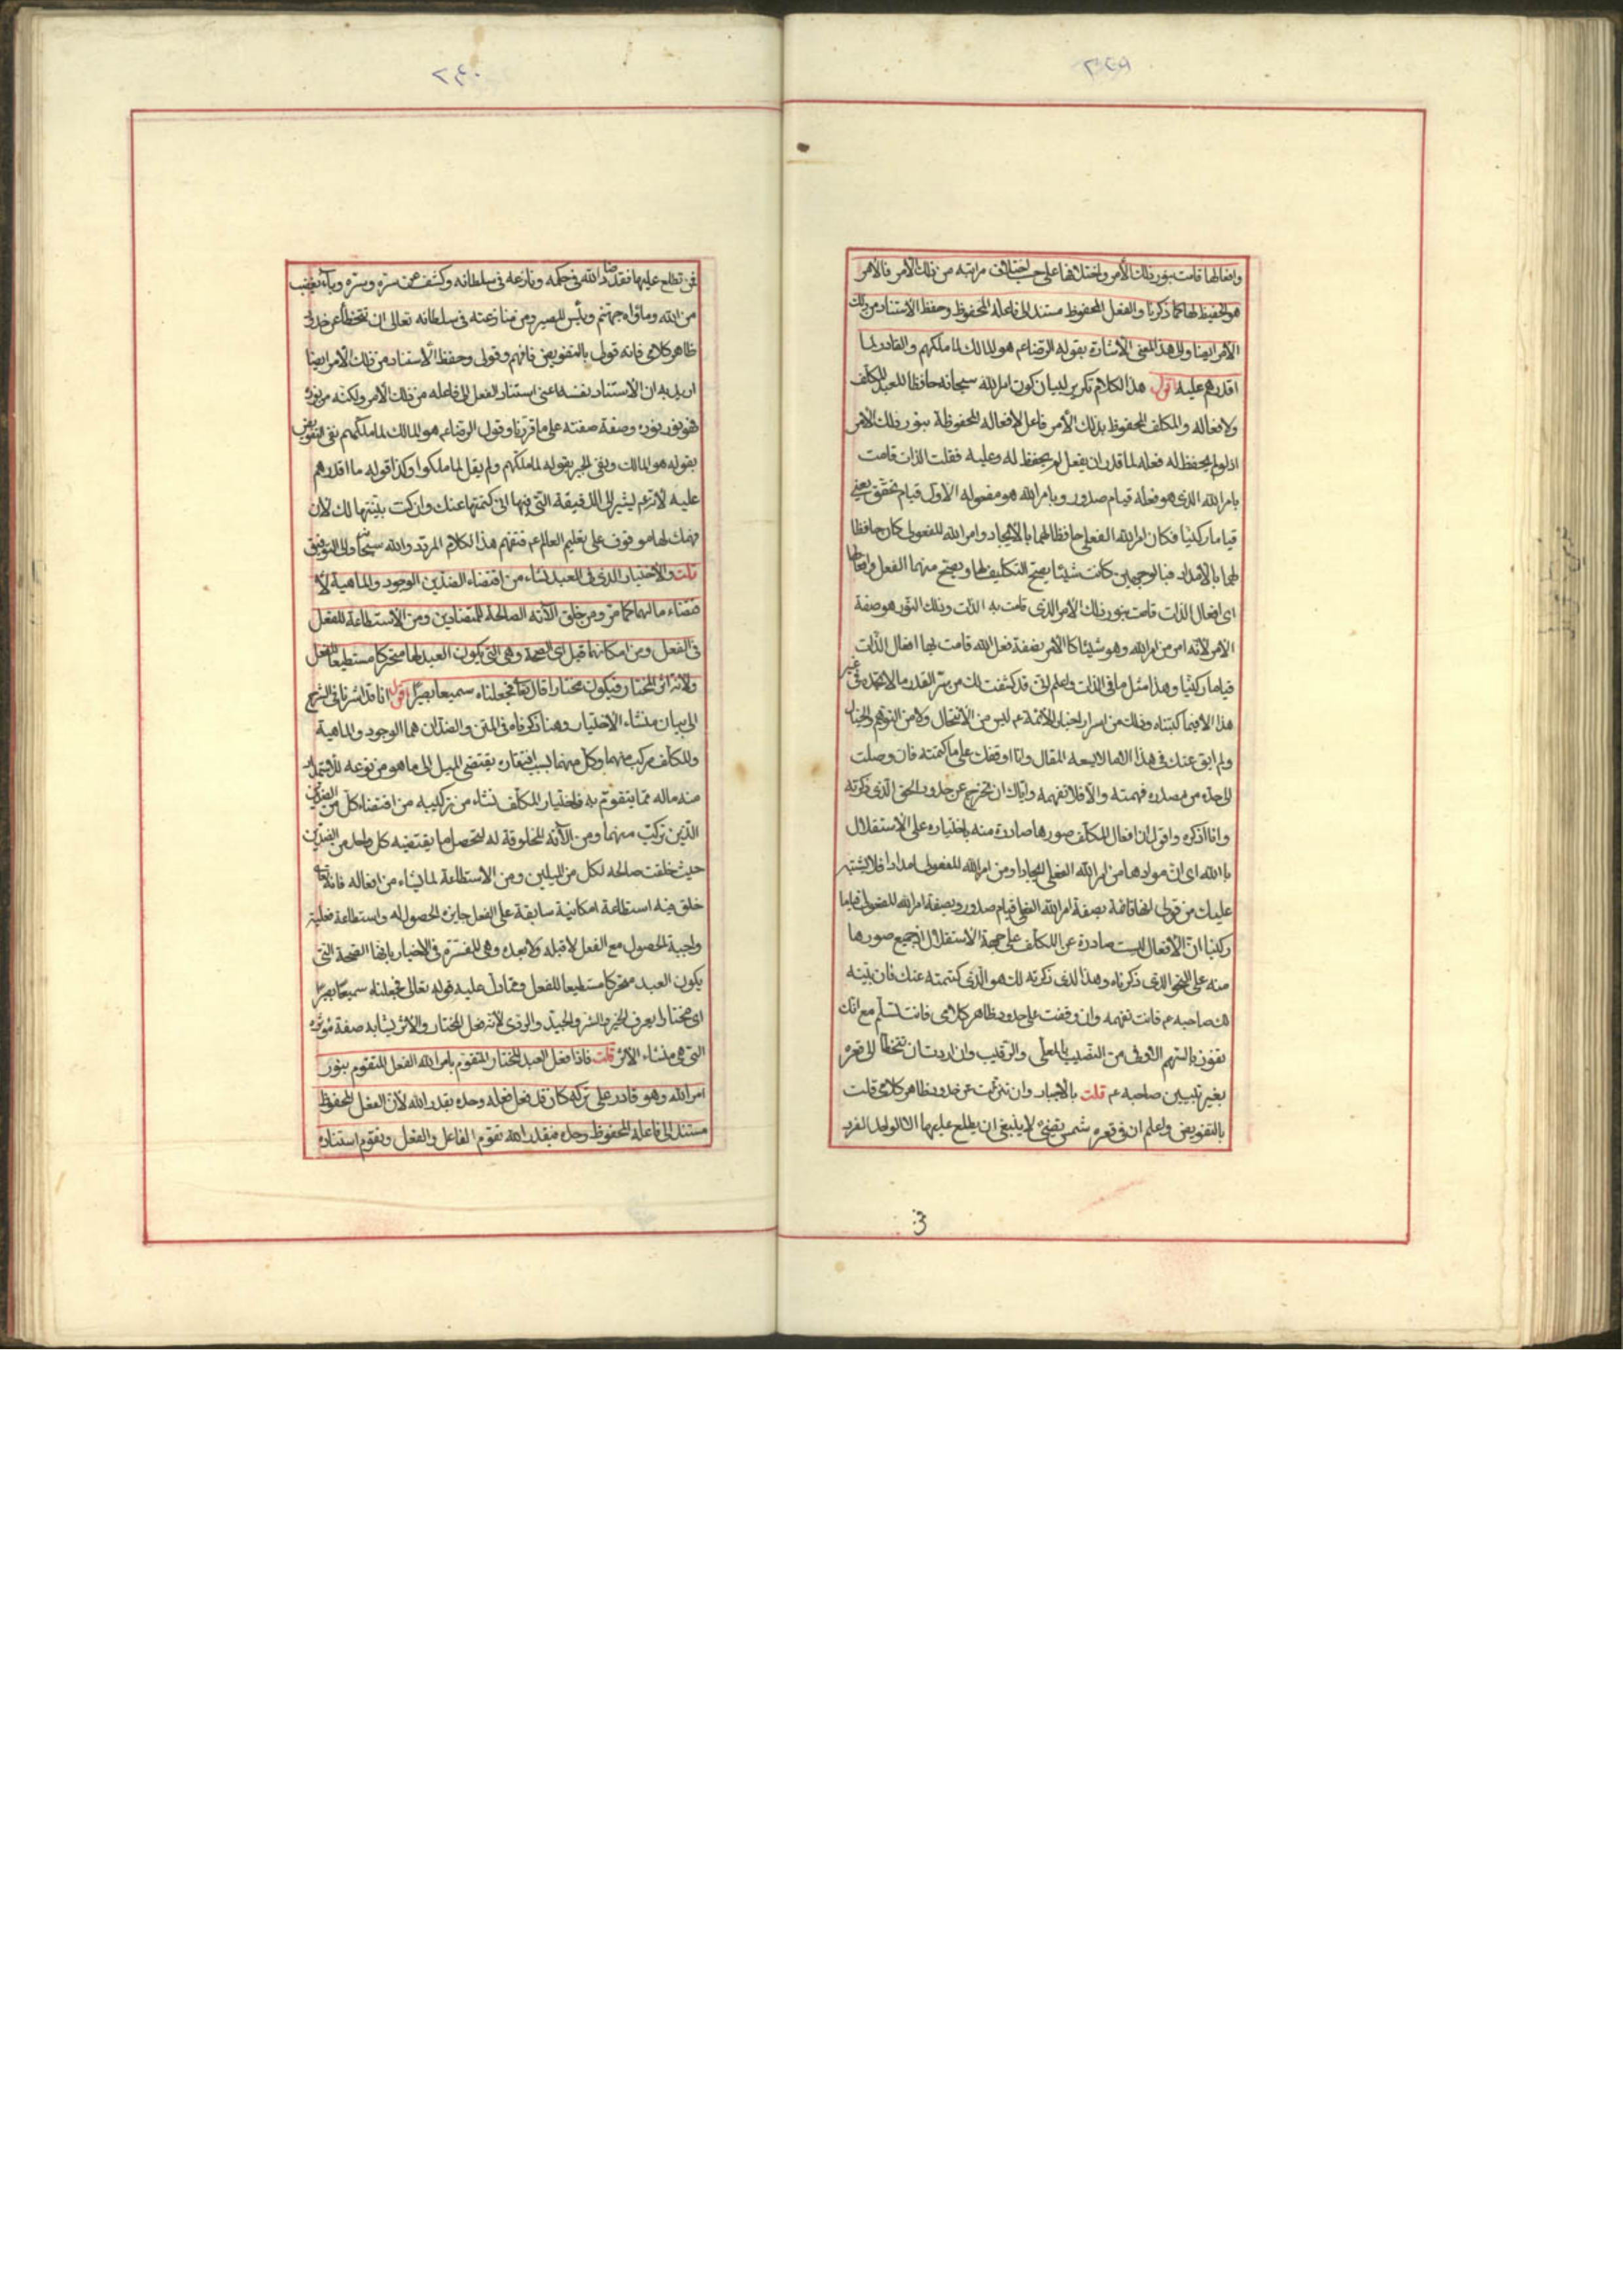 ٢٣٩
وافعالها قامت بنور ذلك الأمر واختلافها على حسب اختلاف مراتبه من ذلك الأمر فالأمر
هو الحفيظ لها كما ذكرنا والفعل المحفوظ مستند الى فاعله المحفوظ وحفظ الاستناد من ذلك
الأمر ايضا والى هذا المعنى الاشارة بقوله الرضا عم هو المالك لما ملكهم والقادر لما
اقدرهم عليه اقول هذا الكلام تكرير لبيان كون امر الله سبحانه حافظا للعبد المكلف
ولافعاله والمكلف المحفوظ بذلك الأمر فاعل لافعاله المحفوظة بنور ذلك الأمر
اذ لو لم يحفظ له فعله لما قدر ان يفعل لم يحفظ له وعليه فقلت الذات قامت
بامر الله الذى هو فعله قيام صدور وبامر الله هو مفعوله الاول قيام تحقق يعنى
قياما ركنيا فكان امر الله الفعلى حافظا لهما بالايجاد وامر الله المفعولى كان حافظا
لهما بالامداد فبالوجهين كانت شيئا يصح التكليف لها ويصح منهما الفعل وافعالها
اى افعال الذات قامت بنور ذلك الأمر الذى قامت به الذات وذلك النور هو صفة
الأمر لأنه امر من امر الله وهو شيئا كالأمر بصفة فعل الله قامت لها افعال الذات
قياما ركنيا وهذا مثل ما فى الذات واعلم انى قد كشفت لك من سر القدر ما لا تجده فى غير
هذا الا فيما كتبناه وذلك من اسرار اخبار الائمة عم ليس من الانتحال ولا من التوهم والخيال
ولم ابق عنك فى هذا الا ما لا يسعه المقال وانا اوقفك على ما كتمته فان وصلت
الى حده من مصدره فهمته والا فلا تفهمه واياك ان تخرج عن حدود الحق الذى ذكرته
وانا اذكره واقول ان افعال المكلف صورها صادرة منه باختياره على الاستقلال
بالله اى ان موادها من امر الله الفعلى ايجادا ومن امر الله المفعولى امدادا فلا يشتبه
عليك من قولى انها قائمة بصفة امر الله الفعلى قيام صدور وبصفة امر الله المفعولى قياما
ركنيا ان الافعال ليست صادرة عن المكلف على جهة الاستقلال اذ جميع صورها
منه على النحو الذى ذكرناه وهذا الذى ذكرته لك هو الذى كتمته عنك فان بينه
لك صاحبه عم فانت تفهمه وان وقفت على حدود ظاهر كلامى فانت تسلم مع انك
تفوز بالسهم الاوفى من النصيب بالمعلى والرقيب وان اردت ان تتخطا الى قعره
بغير تبيين صاحبه عم قلت بالاجبار وان نزلت عن حدود ظاهر كلامى قلت
بالتفويض واعلم ان فى قعره شمس تضئ لا ينبغى ان يطلع عليها الا الواحد الفرد
3
٢٤٠
فمن تطلع عليها فقد ضاد الله فى حكمه ونازعه فى سلطانه وكشف عن ستره وسره وباء بغضب
من الله ومأواه جهنم وبئس المصير ومن منازعته فى سلطانه تعالى ان تتخطا عن حدود
ظاهر كلامى فانه قول بالتفويض فافهم وقولى وحفظ الاستناد من ذلك الأمر ايضا
اريد به ان الاستناد نفسه اعنى استناد الفعل الى فاعله من ذلك الأمر ولكنه من نوره
فهو نور نوره وصفة صفته على ما قررنا وقول الرضا عم هو المالك لما ملكهم نفى التفويض
بقوله هو المالك ونفى الجبر بقوله لما ملكهم ولم يقل لما ملكوا وكذا قوله ما اقدرهم
عليه لانه عم يشير الى الدقيقة التى فيها التى كتمتها عنك وان كنت بينتها لك لان
فهمك لها موقوف على تعليم العالم عم فتفهم هذا الكلام المردد والله سبحانه ولى التوفيق
قلت والاختيار الذى فى العبد نشاء من اقتضاء الضدين الوجود والماهية لا
قتضاء ما لهما كما مر ومن خلق الآلة الصالحة للمتضادين ومن الاستطاعة للفعل
فى الفعل ومن امكانها قبل اى الصحة وهى التى يكون العبد لها متحركا مستطيعا للفعل
ولانه اثر المختار فيكون مختارا قال تعالى فجعلناه سميعا بصيرا اقول انا قد اشرنا فى الشرح
الى بيان منشاء الاختيار وهنا ذكرناه فى المتن والضدان هما الوجود والماهية
والمكلف مركب منهما وكل منهما لسبب افتقاره يقتضى الميل الى ما هو من نوعه للاستمداد
منه ماله مما يتقوم به فاختيار المكلف نشاء من تركيبه من اقتضاء كل من الضدين
الذين تركب منهما ومن الآلة المخلوقة له لتحصيل ما يقتضيه كل واحد من الضدين
حيث خلقت صالحة لكل من الميلين ومن الاستطاعة لما يشاء من افعاله فانه تعالى
خلق فيه استطاعة امكانية سابقة على الفعل جايزة الحصول له واستطاعة فعلية
واجبة الحصول مع الفعل لا قبله ولا بعده وهى المفسرة فى الاخبار بانها الصحة التى
يكون العبد متحركا مستطيعا للفعل ومما دل عليه قوله تعالى فجعلناه سميعا بصيرا
اى مختارا يعرف الخير والشر والجيد والردى لانه فعل المختار والاثر يشابه صفة مؤثره
التى هى منشاء الاثر قلت فاذا فعل العبد المختار المتقوم بامر الله الفعل المتقوم بنور
امر الله وهو قادر على تركه كان قد فعل فعله وحده بقدر الله لأن الفعل المحفوظ
مستند الى فاعله المحفوظ وحده فبقدر الله تقوم الفاعل والفعل وتقوم استناده